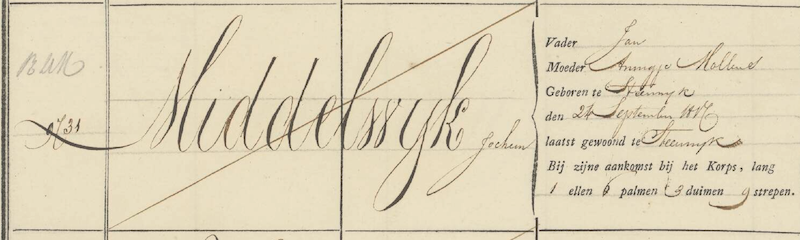 No 31
Middelwyk Jochem
Vader Jan
Moeder Annigje Mollend
Geboren te Steenwyk
den 24 September 1817
laatst gewoond te Steenwyk
Bij zijne aankomst bij het Korps, lang
1 ellen 6 palmen 3 duimen 9 strepen.